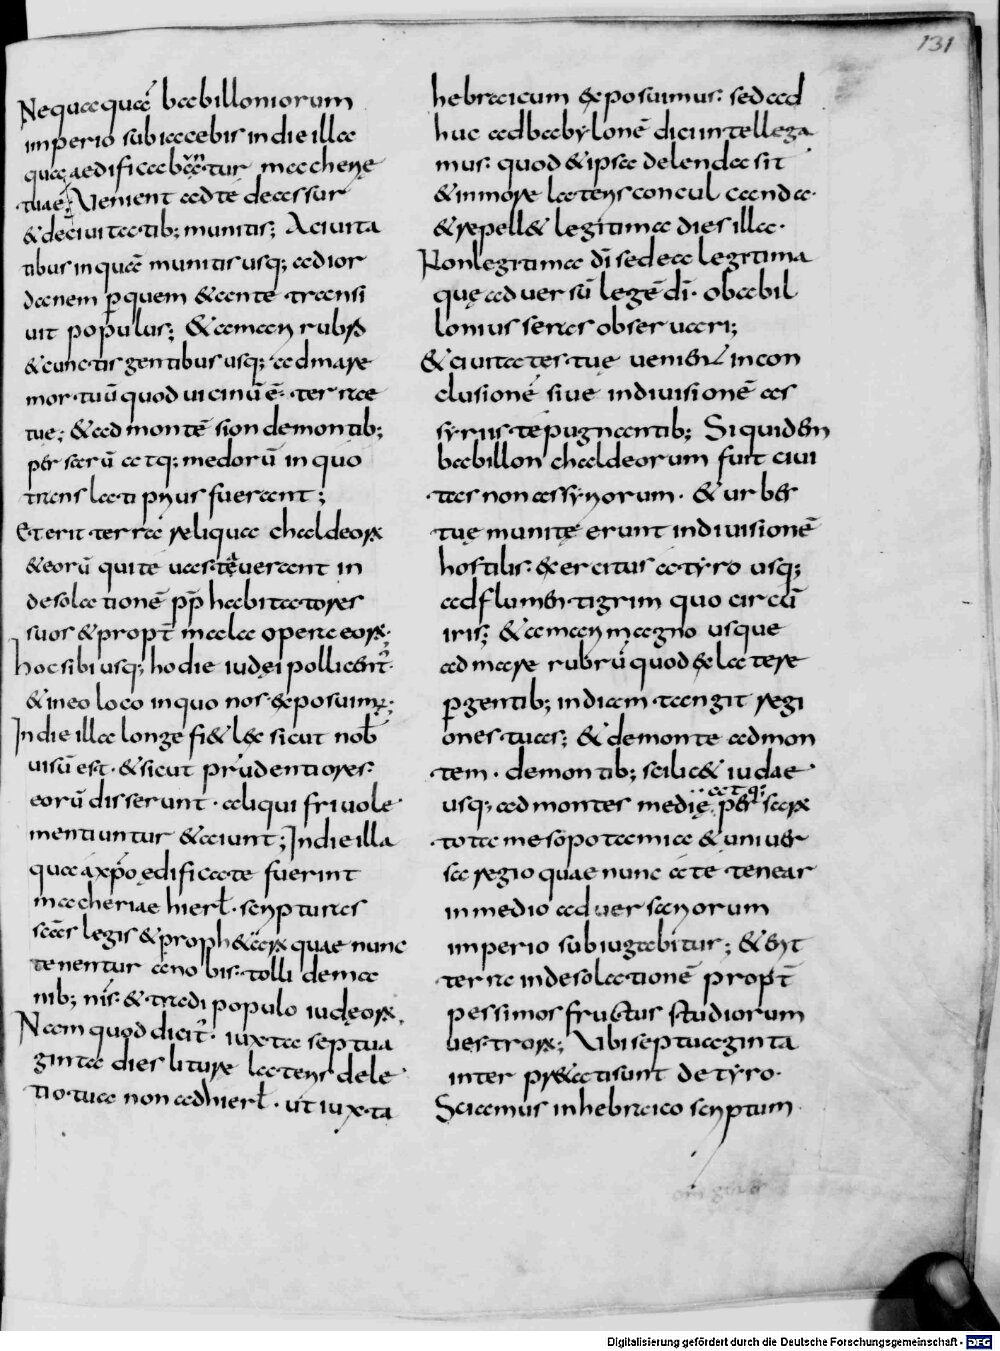 131
Nequaquā babilloniorum
imperio subiacebis in die illa
qua aedificabantur macherie
tuae; Uenient ad te de assur
& de ciuitatib; munitis; A ciuita
tibus inquā munitis usq; ad ior
danem p quem & ante transi
uit populus; & a mari rubro
& cunctis gentibus usq; ad mare
mortuū quod uicinū ē terrae
tue; & ad montē sion de montib;
persarū atq; medorū in quo
translati prius fuerant;
Et erit terra reliqua chaldeorx
& eorū qui te uastauerant in
desolationē pp habitatores
suos & propt mala opera eorx;
hoc sibi usq; hodie iudęi pollicent
& in eo loco in quo nos exposuim;
In die illa longe fi& lex sicut nob
uisū est & sicut prudentiores
eorū disserunt. aliqui friuole
mentiuntur & aiunt; In die illa
qua a xpo ędificate fuerint
macheriae hierl. scripturas
scās legis & proph&arx quae nunc
tenentur a nobis tolli de ma
nib; nris & tradi populo iudęorx,
Nam quod dicit iuxta septua
ginta dies liturę lateris dele
tio tua non ad hierl. ut iuxta
hebraicum exposuimus. sed ad
huc ad babylonē dici intellega
mus. quod & ipsa delenda sit
& in more lateris conculcanda.
& repell& legitima dies illa.
Non legitima di sed ea legitima
quę aduersū legē di. obabil
lonius seras obseruari;
& ciuitates tuę uenient in con
clusionē siue in diuisionē as
syriis te pugnantib; Siquidem
babillon chaldeorum fuit ciui
tas non assyriorum. & urbes
tuę munitę erunt in diuisionē
hostilis exercitus a tyro usq;
ad flumen tigrim quo circū
iris; & a mari magno usque
ad mare rubrū quod ex latere
p gentib; indiam tangit regi
ones tuas; & de monte ad mon
tem. de montib; scilic& iudae
usq; ad montes medię atq; persarx
tota mesopotamia & uniuer
sa regio quae nunc a te tenear
in medio aduersariorum
imperio subiugabitur; & erit
terra in desolationē propt
pessimos fructus studiorum
uestrorx; Ubi septuaginta
inter pr&ati sunt de tyro.
Sciamus in hebraico scriptum
Digitalisierung gefördert durch die Deutsche Forschungsgemeinschaft - DFG